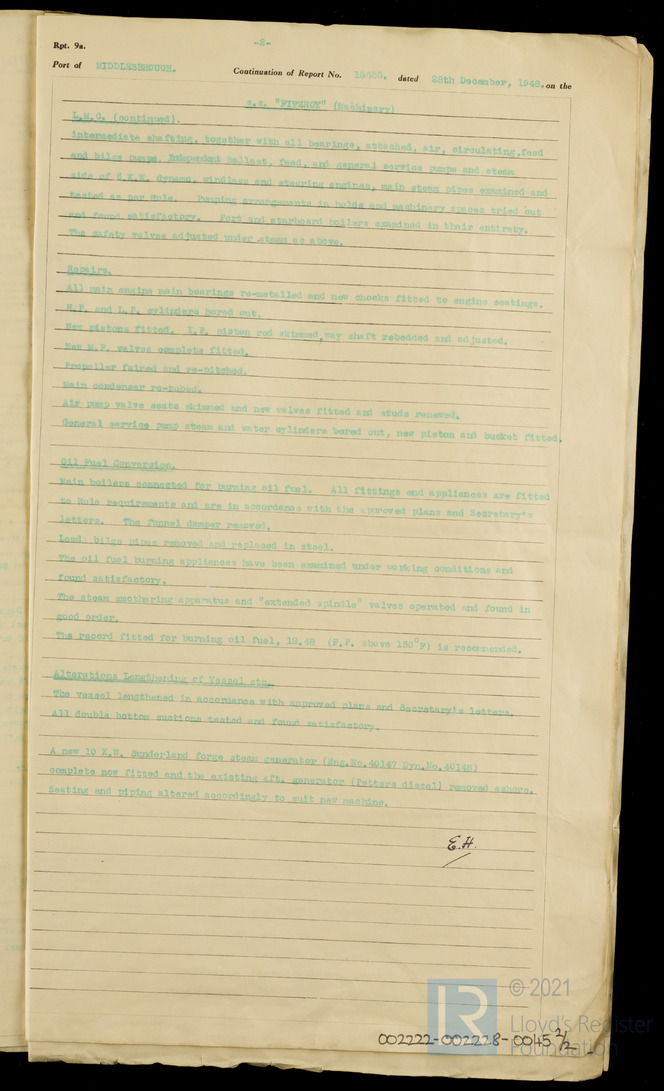 Rpt. 9a.
-2-
Port of MIDDLESBROUGH. Continuation of Report No. dated 28th December, 1948. on the
s.s. "FITZROY" (Machinery)
L.M.C. (continued).
intermediate shafting, together with all bearings, attached, air, circulating, feed
and bilge pumps, Independent ballast, feed, and general service pumps and steam
side of 6 K.W. dynamo, windlass and steering engines, main steam pipes examined and
tested as per Rule. Pumping arrangements in holds and machinery spaces tried out
and found satisfactory. Port and starboard boilers examined in their entirety.
The safety valves adjusted under steam as above.
Repairs.
All main engine main bearings re-metalled and new chocks fitted to engine seatings.
H.P. and L.P. cylinders bored out.
New pistons fitted. I.P. piston rod skimmed, way shaft rebedded and adjusted.
New M.P. valves complete fitted.
Propeller faired and re-pitched.
Main condenser re-tubed.
Air pump valve seats skimmed and new valves fitted and studs renewed.
General service pump steam and water cylinders bored out, new piston and bucket fitted.
Oil Fuel Conversion.
Main boilers connected for burning oil fuel. All fittings and appliances are fitted
to Rule requirements and are in accordance with the approved plans and Secretary's
letters. The funnel damper removed.
Lead bilge pipes removed and replaced in steel.
The oil fuel burning appliances have been examined under working conditions and
found satisfactory.
The steam smothering apparatus and "extended spindle" valves operated and found in
good order.
The record fitted for burning oil fuel, 12.48 (F.P. above 150°F) is recommended.
Alterations Lengthening of Vessel etc.
The vessel lengthened in accordance with approved plans and Secretary's letters.
All double bottom suctions tested and found satisfactory.
A new 10 K.W. Sunderland forge steam generator (Eng.No.40147 Dyn.No.40148)
complete now fitted and the existing aft. generator (Petters diesel) removed ashore.
Seating and piping altered accordingly to suit new machine.
E.H.
LR
© 2021
Lloyd's Register
Foundation
002222-002228-0045 2/2